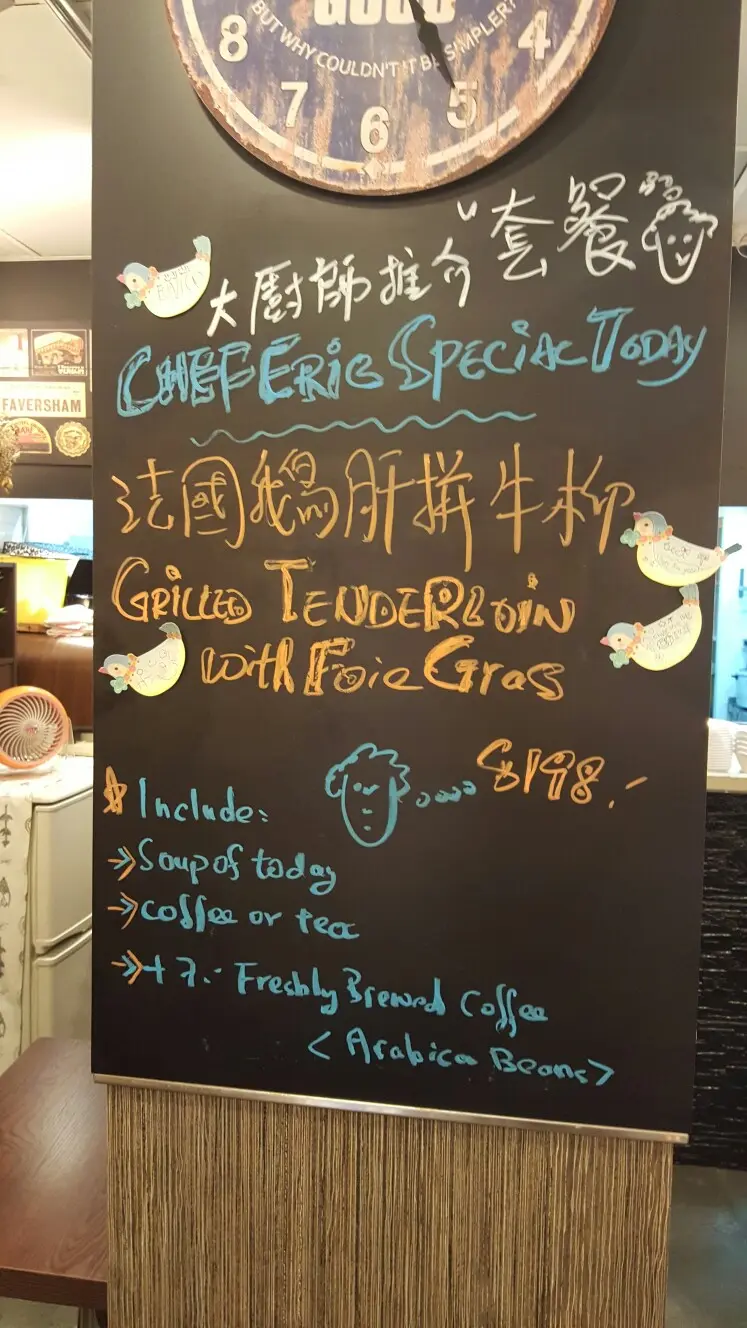 GOOD
BUT WHY COULDN'T IT BE SIMPLER?
8 7 6 5 4
"套餐
大廚師推介
CHEF ERIC SPECIAL TODAY
法國鵝肝拼牛柳
GRILLED TENDERLOIN
with Foie Gras
$198.-
Include:
Soup of today
coffee or tea
+7.- Freshly Brewed Coffee
<Arabica Beans>
FAVERSHAM